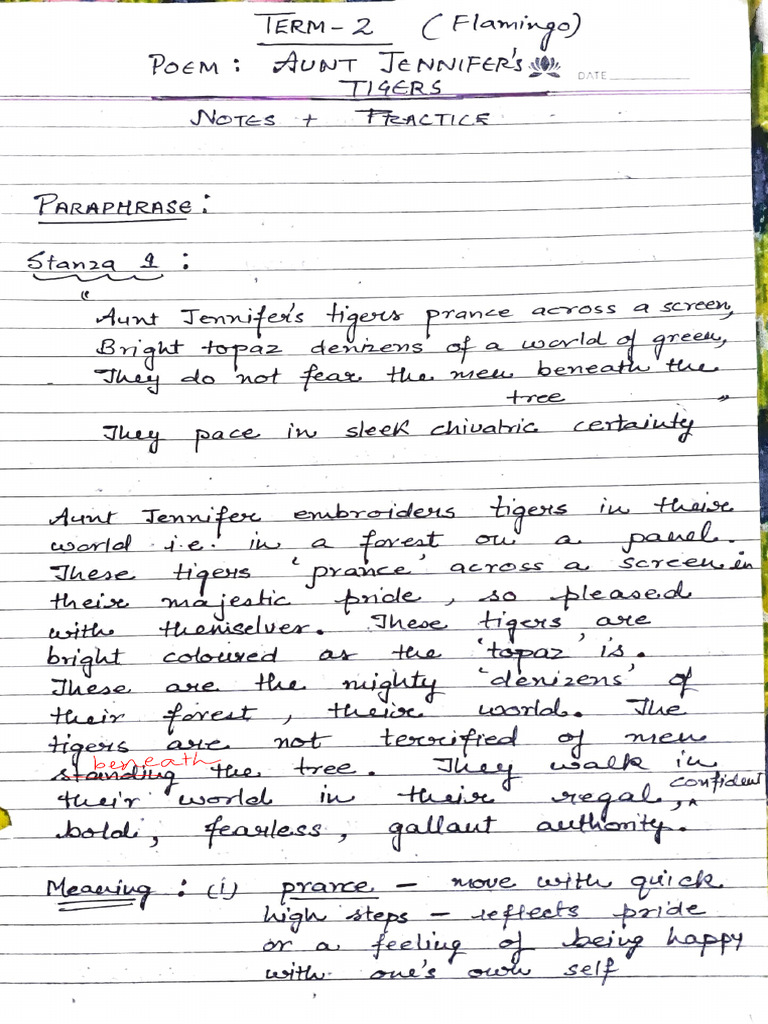 TERM-2 (Flamingo)
POEM: AUNT JENNIFER'S
DATE
TIGERS
NOTES + PRACTICE
PARAPHRASE:
Stanza 1 :
"
Aunt Jennifer's tigers prance across a screen,
Bright topaz denizens of a world of green,
They do not fear the men beneath the
tree
They pace in sleek chivalric certainty "
Aunt Jennifer embroiders tigers in their
world i.e. in a forest on a panel.
These tigers 'prance' across a screen in
their majestic pride, so pleased
with themselves. These tigers are
bright coloured as the 'topaz' is.
These are the mighty 'denizens' of
their forest, their world. The
tigers are not terrified of men
beneath
standing the tree. They walk in
confident
their world in their regal, ^
bold, fearless, gallant authority.
Meaning : (i) prance – move with quick
high steps – reflects pride
or a feeling of being happy
with one's own self